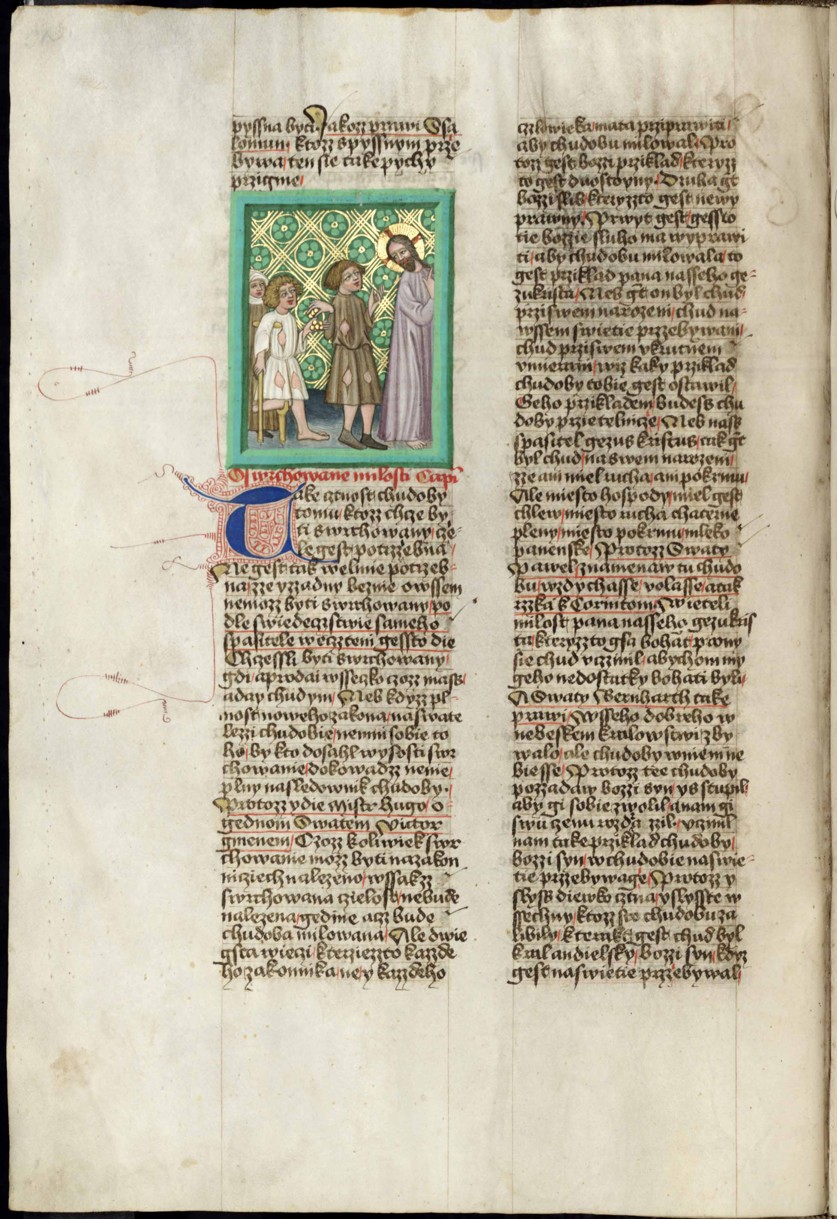 pyssna byti Jakozz prawi Ssa
lomun ktozz spyssnym prze
bywa ten sie take pychy
przigme
O swrchowane milosti Capi
Take cznost chudoby
tomu ktozz chcze by
ti swrchowany cze
le gest potrzebna
Ne gest tak welmie potrzeb
na zze yzzadny beznie owssem
nemozz byti swrchowany po
dle swiedeczstwie sameho
spasitele w cztenj gessto die
Chczessli byti swrchowany
gdi a prodai wsseczko czozz mass
a day chudym Neb kdyzz pl
nost noweho zakona naswate
lezzi chudobie nenni sobie to
ho by kto dosahl wysosti swr
chowanie dokowadzz nenie
plny nasledownik chudoby
Protozz y die Mistr Hugo o
gednom Swatem Victor
gmenem Czozz koliwiek swr
chowanie mozz byti na zakon
niczich nalezeno wssakzz
swrchowana czielost nebude
nalezena gedine azz bude
chudoba milowana Ale dwie
gsta wieczi kterziezzto kazzde
ho zakonnika ne y kazzdeho
czlowieka mata przipuzwiti
aby chudobu milowal Pro
tozz gest bozzi przklad kteryzz
to gest duostoyny Druha gt
bozzi slib kteryzzto gest newy
prawny Prwyt gest gessto
tie bozzie sluho ma wyprawi
ti aby chudobu milowala to
gest przklad pana nasseho ge
zukrista Neb gt on byl chud
przi swem narozeni chud na
wssem swietie przzebywani
chud przi swem vkrutnem
vmierani wiz kaky przklad
chudoby tobie gest ostawil
Geho przikladem budess chu
doby przietelnicze Neb nass
spasitel gezus kristus tak gt
byl chud na swem narozeni
zze ani miel rucha ani pokrmu
Ale miesto hospody miel gest
chlew miesto rucha chaterne
pleny miesto pokrmu mleko
panenske Protozz Swaty
Pawel znamenaw tu chudo
bu wzdychasse volasse a tak
rzka k Corintom Swieteli
milost pana nasseho gezukris
ta kteryzzto gsa bohat p wny
sie chud vczinil abychom my
geho nedostatky bohati byli
A Swaty Bernharth take
prawi Wsseho dobreho w
nebeskem kralowstwi zby
walo ale chudoby w niem ne
biesse Protozz tee chudoby
pozzadaw bozzi syn vs stupil
aby gi sobie zwolil a nam gi
swu czenu wzdrazzil vczinil
nam take przklad chudoby
bozzi syn w chudobie na swie
tie przzebywage Protozz y
slyss diewko cztna vslysste w
ssechny ktozz ste chudobu za
libily kterak gest chud byl
kral andielsky bozzi syn kdyz
gest na swietie przzebywal